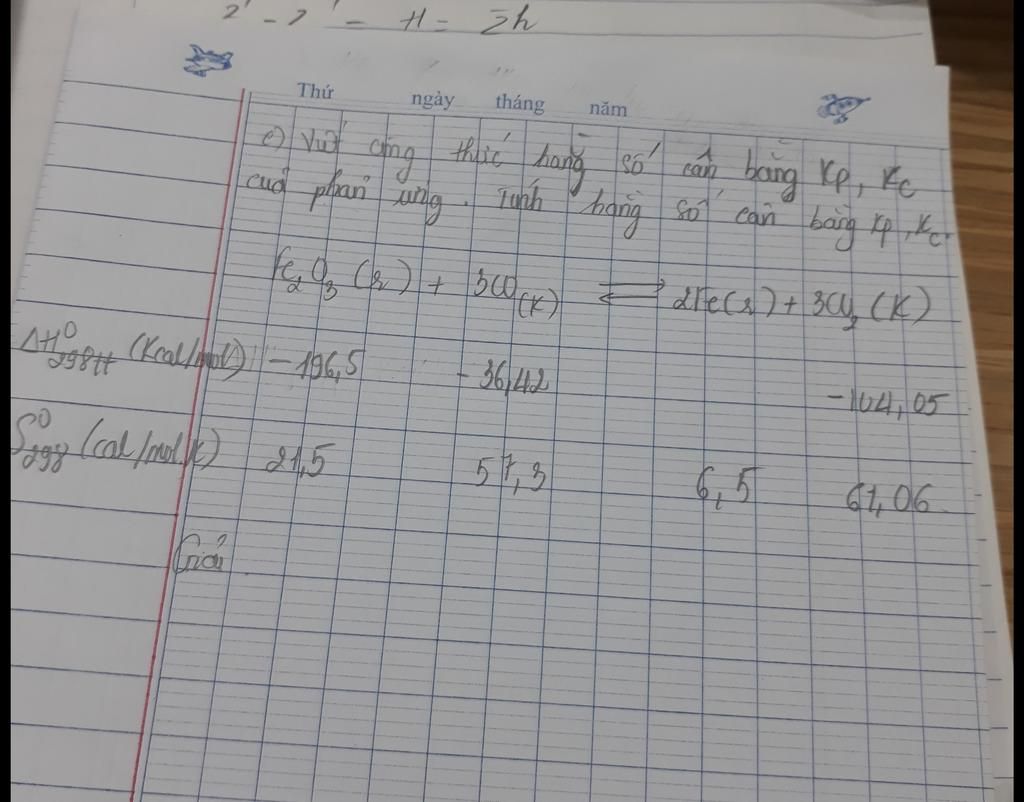 2 - 2 - H = 2h
Thứ ngày tháng năm
c) Viết công thức hằng số cân bằng Kp, Kc
của phản ứng. Tính hằng số cân bằng Kp, Kc.
Fe₂O₃ (r) + 3CO (K) ⇌ 2Fe(r) + 3CO₂ (K)
ΔH⁰₂₉₈tt (Kcal/mol) -196,5 -36,42 -104,05
S⁰₂₉₈ (cal/mol.K) 21,5 57,3 6,5 61,06
Giải